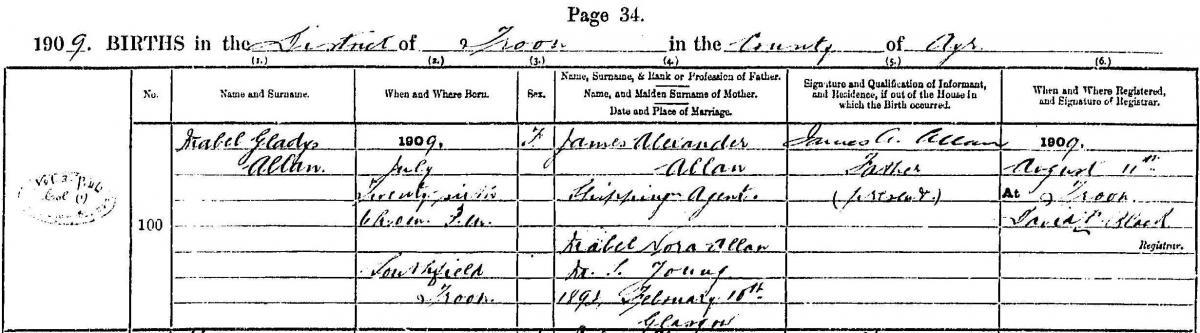 Page 34.
1909. BIRTHS in the District of Troon in the County of Ayr
(1.) (2.) (3.) (4.) (5.) (6.)
No.
Name and Surname.
When and Where Born.
Sex.
Name, Surname, & Rank or Profession of Father.
Name, and Maiden Surname of Mother.
Date and Place of Marriage.
Signature and Qualification of Informant,
and Residence, if out of the House in
which the Birth occurred.
When and Where Registered,
and Signature of Registrar.
100
Mabel Gladys
Allan.
1909.
July
Southfield
Troon.
F
James Alexander
Allan
Shipping Agent.
Mabel Nora Allan
M. S. Young
February 10th
Glasgow
James A. Allan
Father
(present.)
1909.
August 11th
At Troon
David Black
Registrar.